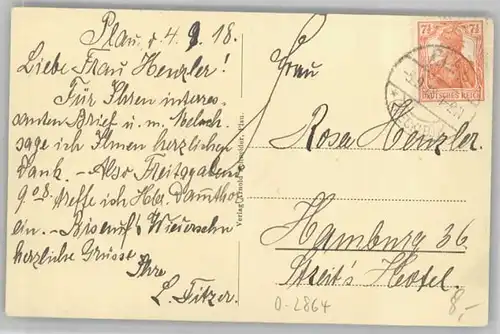 Plau, d. 4. 9. 18.
Liebe Frau Henzler!
Für Ihren interes-
santen Brief u.
sage ich Ihnen herzlichen
Dank. – Also Freitagabend
9 08 treffe ich Hbg. Dammthor
ein. – Bis auf's Wiedersehn
herzliche Grüsse
Ihre
L. Fitzer.
Verlag Arnold Schneider, Plau.
7½ 7½
DEUTSCHES REICH
Frau
Rosa Henzler.
Hamburg 36
Streit's Hotel.
0-2864
8,-